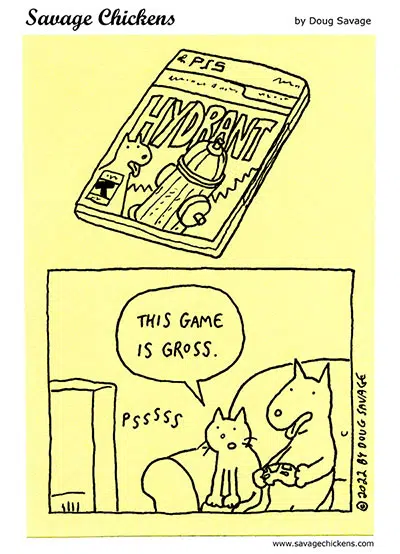 Savage Chickens
by Doug Savage
PS5
HYDRANT
T
THIS GAME
IS GROSS.
PSSSSS
© 2022 BY DOUG SAVAGE
www.savagechickens.com